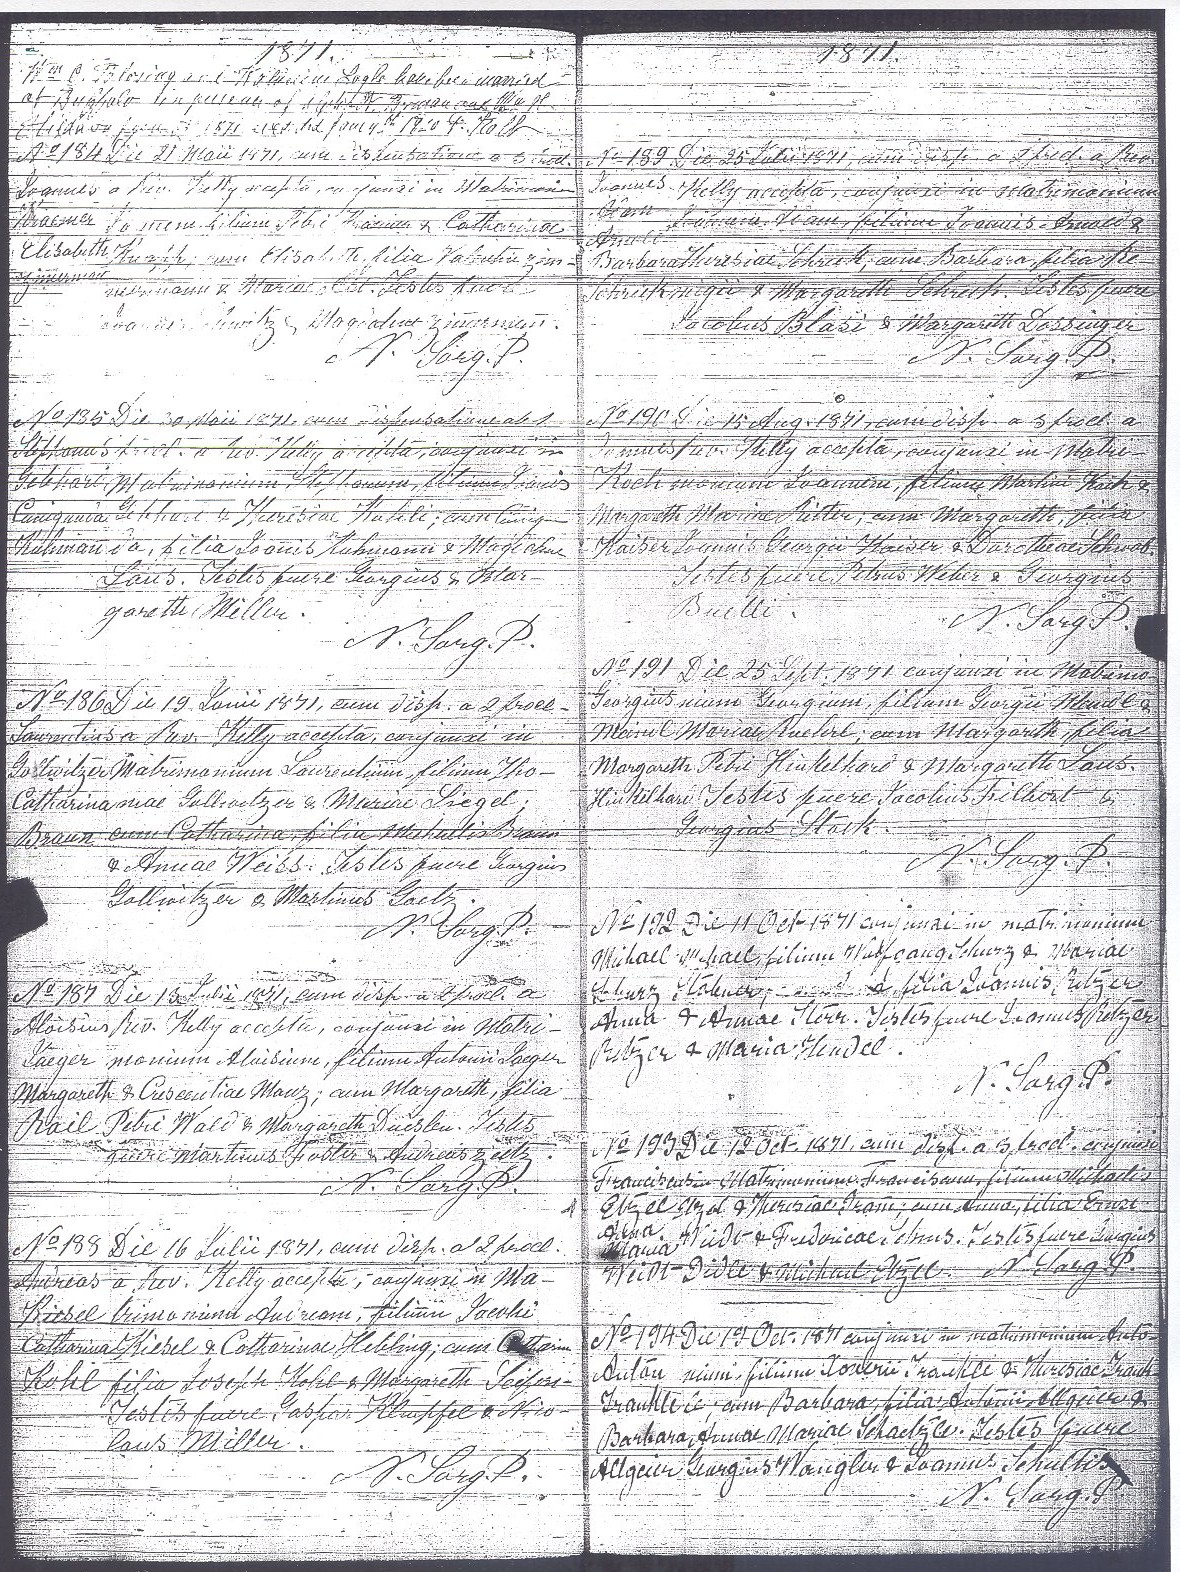 1871.
have been married
at Buffalo in presence of
1871
No 184 Die 21 Maii 1871, cum dispensatione a 3 procl.
Joannes a Rev. Kelly accepta, conjunxi in Matrimonium
Kraemer Joannem, filium Petri Kraemer & Catharinae
Elisabeth cum Elisabeth, filia Valentin Zim-
Zimmerman mermann & Mariae Testes fuere
& Magdalena Zimermann.
N. Sorg. P.
No 185 Die 30 Maii 1871, cum dispensatione ab 1
Stephanus procl. a Rev. Kelly accepta, conjunxi in
Gebhart Matrimonium Stephanum, filium Joannis
Cunigunda Gebhart & Theresiae cum Cunigun-
Kuhmann da, filia Joannis Kuhmann & Magdalenae
Laus. Testes fuere Georgius & Mar-
gareth Miller.
N. Sorg. P.
No 186 Die 19 Junii 1871, cum disp. a 2 procl.
Laurentius a Rev. Kelly accepta, conjunxi in
Gollwitzer Matrimonium Laurentium, filium Tho-
Catharina mae Gollwitzer & Mariae Siegel;
Braun cum Catharina, filia Michaelis Braun
& Annae Weiss. Testes fuere Georgius
Gollwitzer & Martinus Goetz.
N. Sorg. P.
No 187 Die 13 Julii 1871, cum disp. a 2 procl. a
Aloisius Rev. Kelly accepta, conjunxi in Matri-
Jaeger monium Aloisium, filium Antonii Jaeger
Margareth & Crescentiae Mauz; cum Margareth, filia
Rail Petri Wald & Margareth Testes
fuere Martinus & Andreas Zeitz.
N. Sorg. P.
No 188 Die 16 Julii 1871, cum disp. a 2 procl.
Andreas a Rev. Kelly accepta, conjunxi in Ma-
Kiesel trimonium Andream, filium Jacobi
Catharina Kiesel & Catharinae Hebling; cum Catharina
Kohl filia Joseph Kohl & Margareth
Testes fuere Gaspar Klumpfel & Nico-
laus Miller.
N. Sorg. P.
1871.
No 189 Die 25 Julii 1871, cum disp. a 2 procl. a Rev.
Joannes Kelly accepta, conjunxi in Matrimonium
Adam Joannem Adam, filium Joannis Arnold &
Arnold
Barbara Theresiae Schreck, cum Barbara, filia Re
Schreck migii & Margareth Schreck. Testes fuere
Jacobus Blasi & Margareth Dossinger
N. Sorg. P.
No 190 Die 15 Aug. 1871, cum disp. a 3 procl. a
Joannes Rev. Kelly accepta, conjunxi in Matri-
Koch monium Joannem, filium Martini Koch &
Margareth Mariae Ritter; cum Margareth, filia
Kaiser Joannis Georgii Kaiser & Dorotheae Schwab.
Testes fuere Petrus Weber & Georgius
Buelli.
N. Sorg. P.
No 191 Die 25 Sept. 1871 conjunxi in Matrimo-
Georgius nium Georgium, filium Georgii Meindl &
Meindl Mariae cum Margareth, filia
Margareth Petri Hinkelhard & Margareth Laus.
Hinkelhard Testes fuere Jacobus Filhort &
Georgius Stock.
N. Sorg. P.
No 192 Die 11 Oct. 1871 conjunxi in matrimonium
Michael Michael, filium Wolfgang Schurz & Mariae
Schurz filia Joannis Ritzer
Anna & Annae Storr. Testes fuere Joannes Ritzer
Ritzer & Maria Hendel.
N. Sorg. P.
No 193 Die 12 Oct. 1871, cum disp. a 3 procl. conjunxi
Franciscus in Matrimonium Franciscum, filium Michaelis
Etzel Etzel & Theresiae cum Anna, filia
Anna
Maria Weidt & Fredericae Testes fuere Georgius
Weidt & Michael Etzel. N. Sorg. P.
No 194 Die 19 Oct. 1871 conjunxi in matrimonium Anto-
Anton nium, filium Xaverii Frankle & Theresiae Frank-
Frankle le, cum Barbara, filia Antonii Allgeier &
Barbara Annae Mariae Schaetzle. Testes fuere
Allgeier Georgius Wangler & Joannes Schultis
N. Sorg. P.